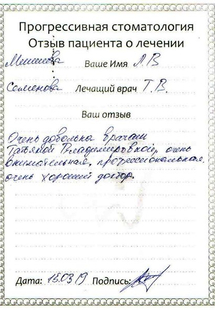 Прогрессивная стоматология
Отзыв пациента о лечении
Ваше Имя Л В
Семенова Лечащий врач Т. В.
Ваш отзыв
Очень довольна врачам
Татьяной Владимировной, очень
внимательная, профессиональная,
очень хороший доктор.
Дата: 15.03.19 Подпись: